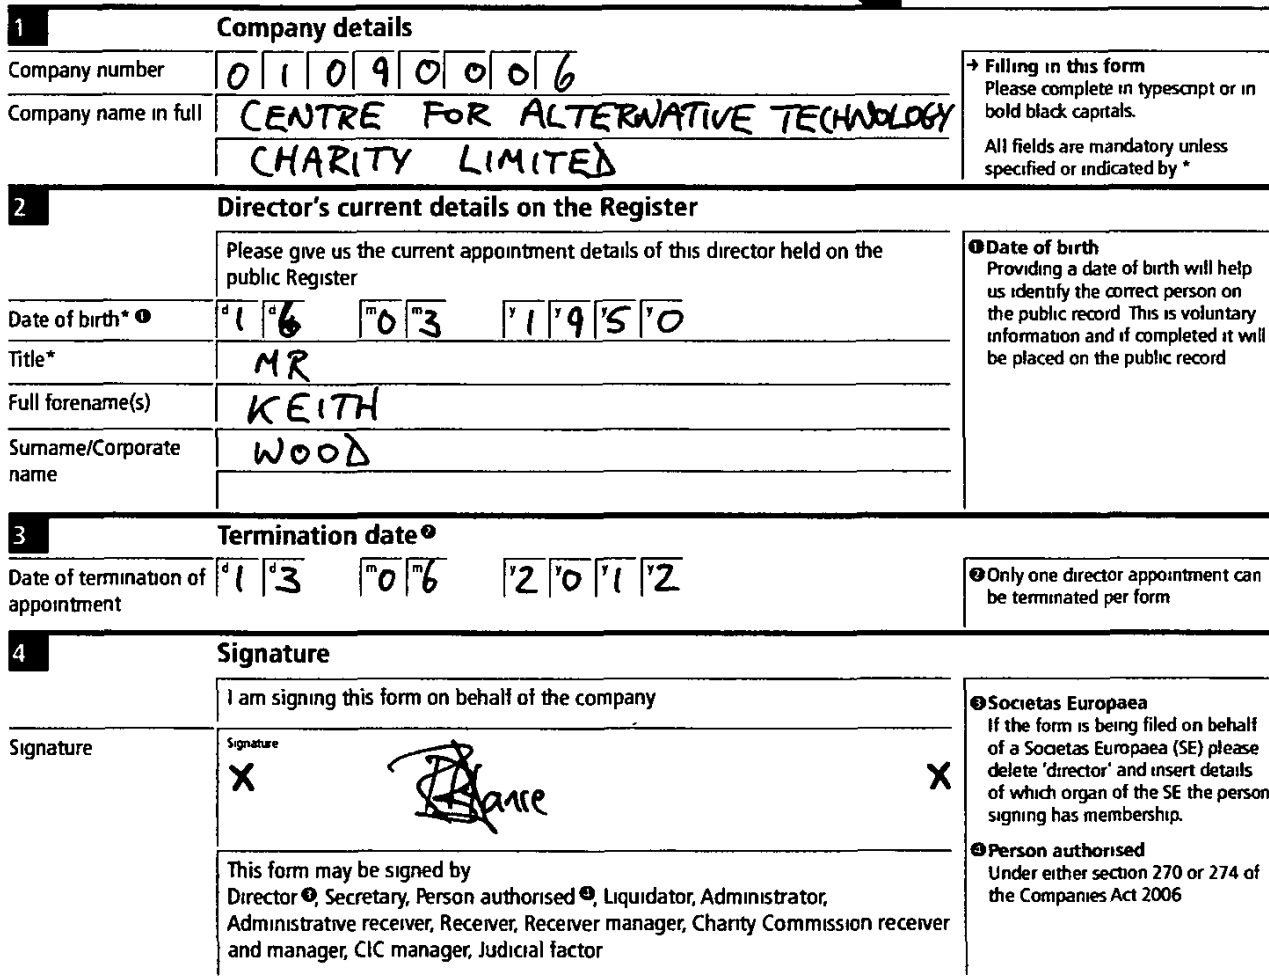 1 Company details
Company number 0 1 0 9 0 0 0 6
Company name in full CENTRE FOR ALTERNATIVE TECHNOLOGY
CHARITY LIMITED
→ Filling in this form
Please complete in typescript or in
bold black capitals.
All fields are mandatory unless
specified or indicated by *
2 Director's current details on the Register
Please give us the current appointment details of this director held on the
public Register
Date of birth* ❶ d 1 d 6 m 0 m 3 y 1 y 9 y 5 y 0
Title* MR
Full forename(s) KEITH
Surname/Corporate
name
WOOD
❶ Date of birth
Providing a date of birth will help
us identify the correct person on
the public record This is voluntary
information and if completed it will
be placed on the public record
3 Termination date ❷
Date of termination of
appointment
d 1 d 3 m 0 m 6 y 2 y 0 y 1 y 2
❷ Only one director appointment can
be terminated per form
4 Signature
I am signing this form on behalf of the company
Signature
Signature
X X
This form may be signed by
Director ❸, Secretary, Person authorised ❹, Liquidator, Administrator,
Administrative receiver, Receiver, Receiver manager, Charity Commission receiver
and manager, CIC manager, Judicial factor
❸ Societas Europaea
If the form is being filed on behalf
of a Societas Europaea (SE) please
delete 'director' and insert details
of which organ of the SE the person
signing has membership.
❹ Person authorised
Under either section 270 or 274 of
the Companies Act 2006